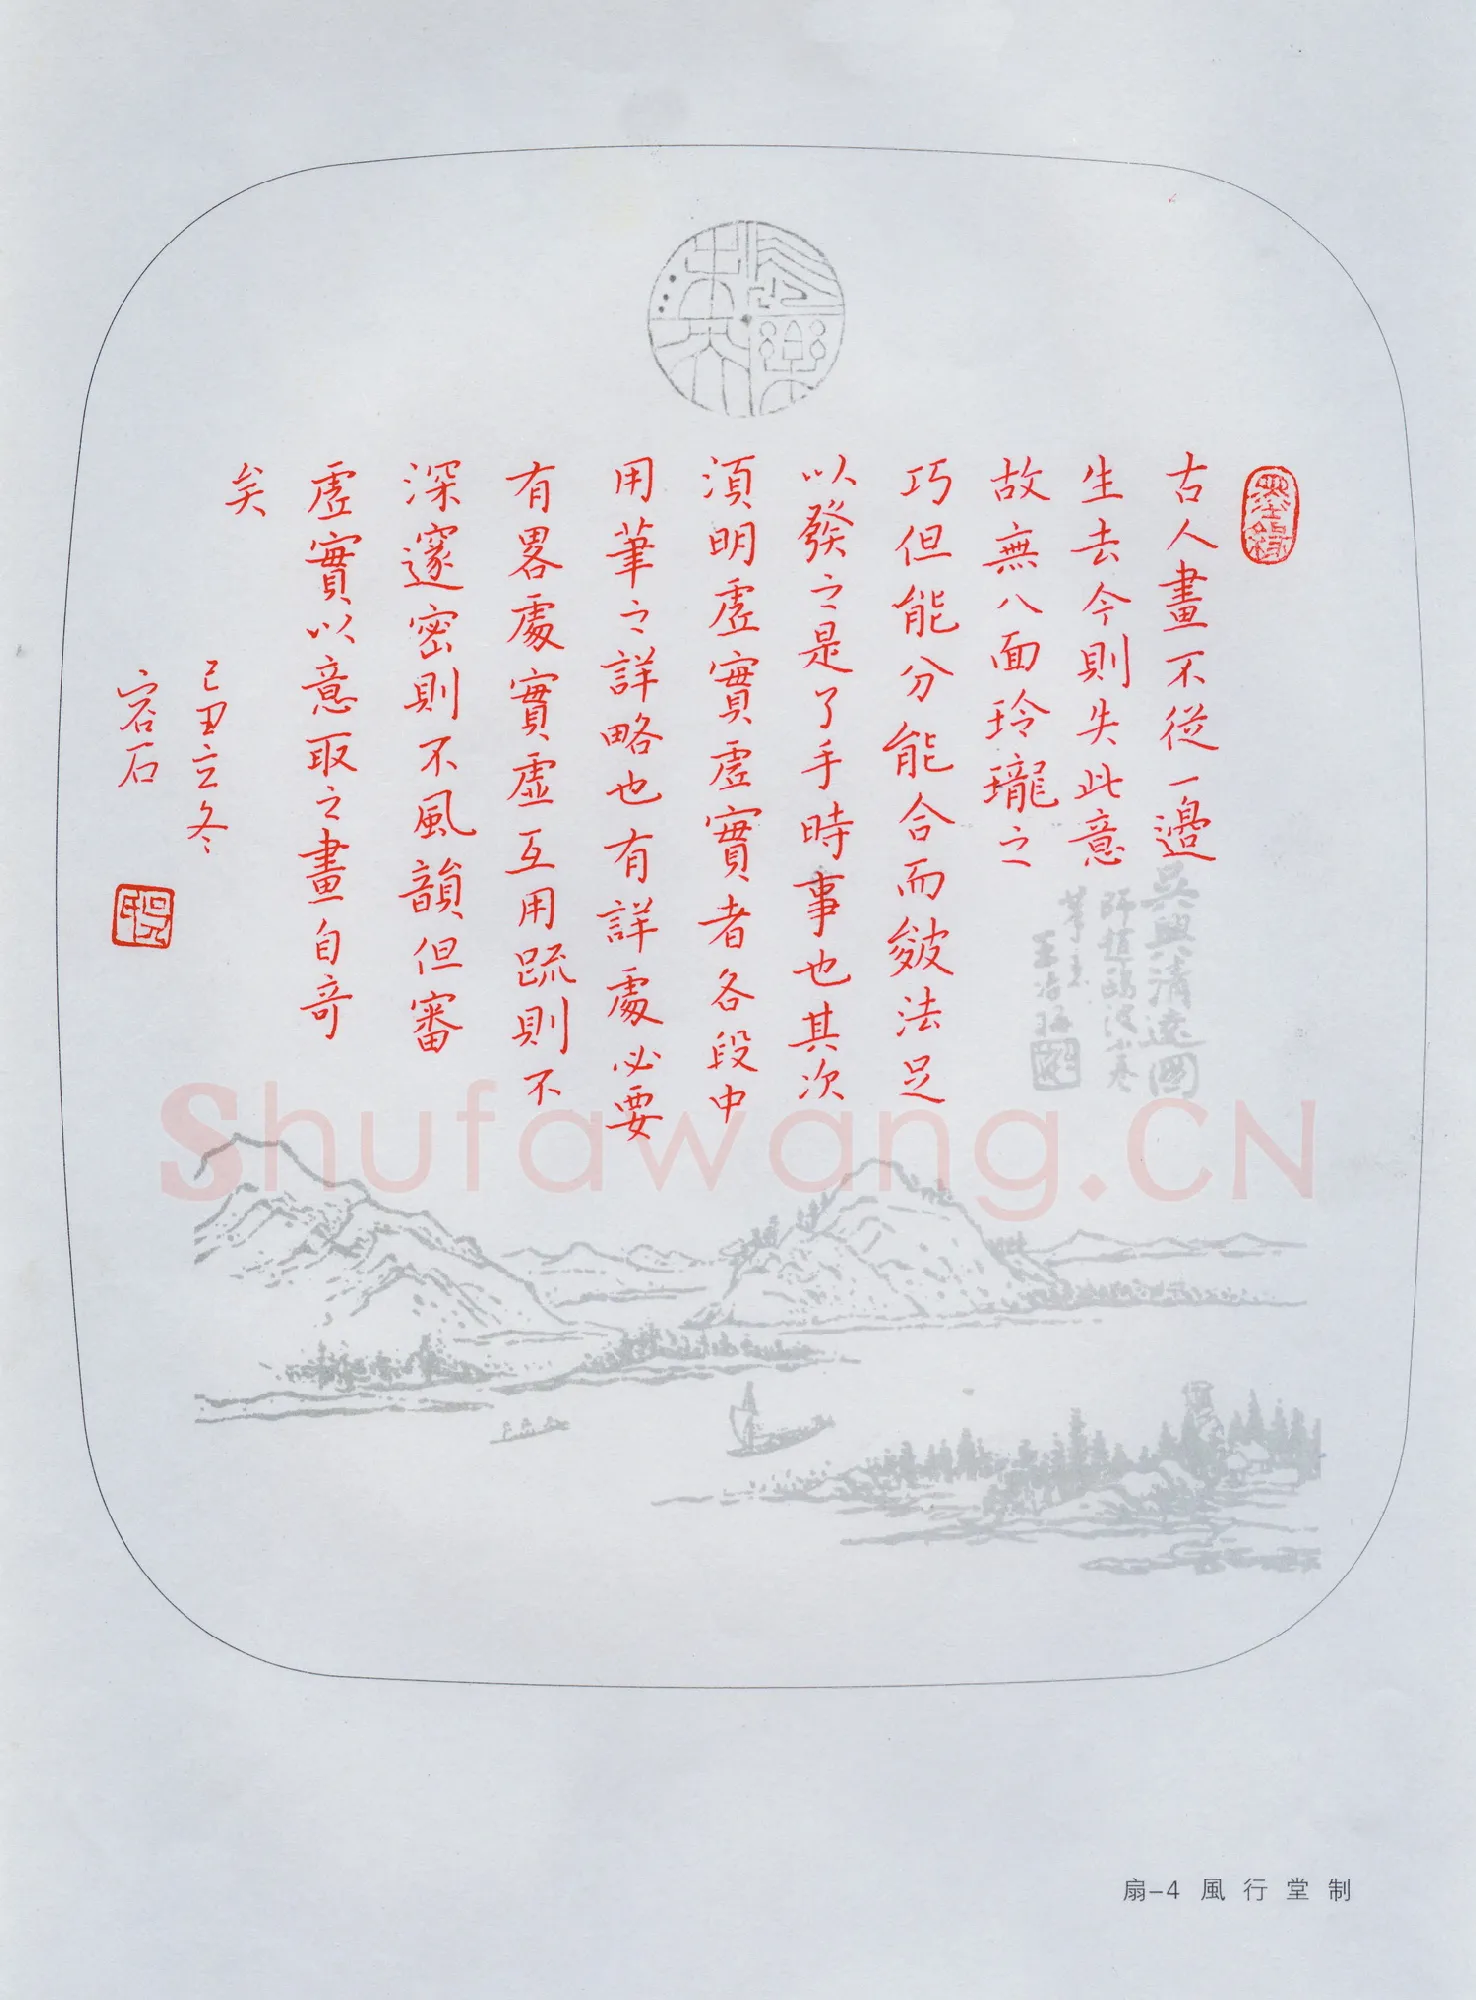 墨緣
古人畫不從一邊
生去今則失此意
故無八面玲瓏之
巧但能分能合而皴法足
以發之是了手時事也其次
須明虛實虛實者各段中
用筆之詳略也有詳處必要
有畧處實虛互用疏則不
深邃密則不風韻但審
虛實以意取之畫自奇
矣
己丑立冬
容石
吳興清遠圖
師趙鷗波小卷
筆意
王
Shufawang.CN
扇-4 風行堂制